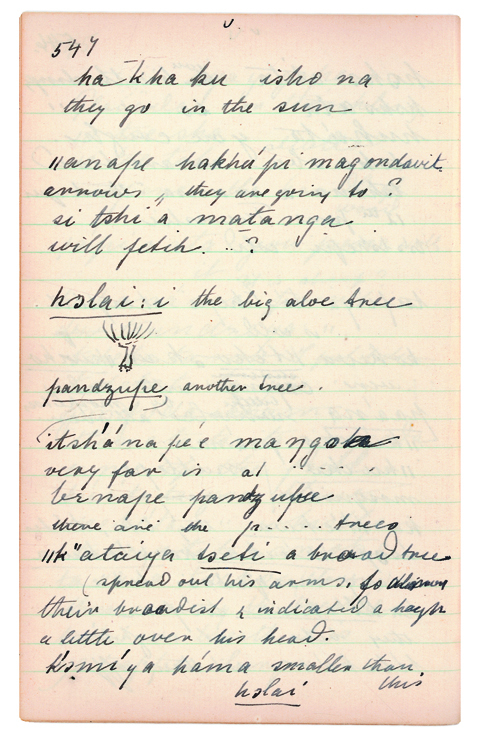 547
ha kha ku isho na
they go in the sun
"anape hakhá pi magondavit.
arrows „ they are going to ?
si tshi a matanga
will fetch. .. ?
hslai : i the big aloe tree
pandzupe, another tree.
itshá na pé é mangota
very far is a . . . .
be nape pandzupe
there are the p. . . . trees
"k"ataiya tseti a broad tree
(spread out his arms,
their broadest & indicated a heigh
a little over his head.
k'smí ya háma smaller than
hslai this